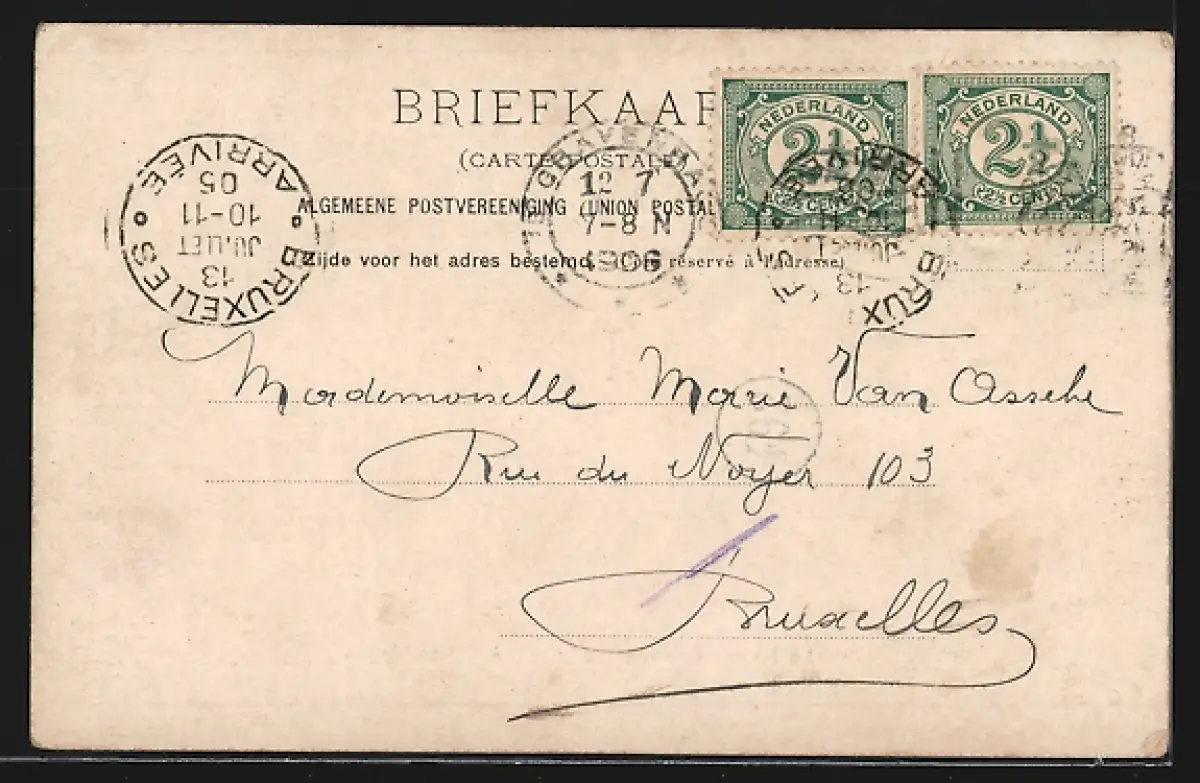 BRIEFKAAR
(CARTE POSTALE)
ALGEMEENE POSTVEREENIGING (UNION POSTAL
Zijde voor het adres bestemd. réservé à l'adresse)
NEDERLAND
2½
(2½ CENT)
NEDERLAND
2½
(2½ CENT)
12 7
7-8 N
BRUXELLES
ARRIVÉE
13
JUILLET
10-11
05
BRUX
13
JUILLET
Mademoiselle Marie Van Assche
Rue du Noyer 103
Bruxelles